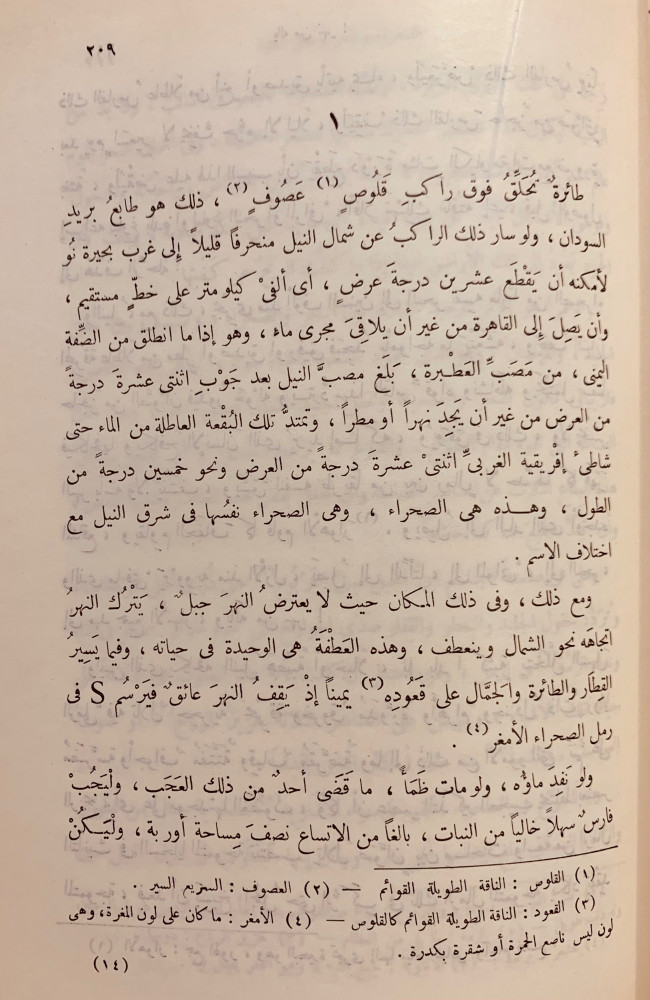 ٢٠٩
١
طائرةٌ تُحَلِّقُ فوق راكبِ قَلُوصٍ (١) عَصُوفٍ (٢) ، ذلك هو طابعُ بريدِ
السودان ، ولو سار ذلك الراكبُ عن شمال النيل منحرفاً قليلاً إلى غرب بحيرة نُو
لأمكنه أن يَقْطَع عشرين درجةَ عرضٍ ، أى ألفىْ كيلو متر على خطٍّ مستقيم ،
وأن يَصِلَ إلى القاهرة من غير أن يلاقِىَ مجرى ماء ، وهو إذا ما انطلق من الضِّفة
اليمنى ، من مَصَبِّ العَطْبرة ، بَلَغ مصبَّ النيل بعد جَوْبِ اثنتى عشرةَ درجةً
من العرض من غير أن يَجِدَ نهراً أو مطراً ، وتمتدُّ تلك البُقْعة العاطلة من الماء حتى
شاطئ إفْريقية الغربىِّ اثنتىْ عشرةَ درجةً من العرض ونحو خمسين درجةً من
الطول ، وهـذه هى الصحراء ، وهى الصحراء نفسُها فى شرق النيل مع
اختلاف الاسم .
ومع ذلك ، وفى ذلك المكان حيث لا يعترضُ النهرَ جبلٌ ، يَتْرُك النهرُ
اتجاهَه نحو الشمال وينعطف ، وهذه العَطْفَةُ هى الوحيدة فى حياته ، وفيما يَسِيرُ
القِطَار والطائرة والجَمَّال على قَعُودِه (٣) يميناً إذْ يَقِفُ النهرَ عائقٌ فيَرْسُم S فى
رمل الصحراء الأمغر (٤) .
ولو نَفِدَ ماؤه ، ولو مات ظَمَأً ، ما قَضَى أحدٌ من ذلك العَجَب ، ولْيَجُبْ
فارسٌ سهلاً خالياً من النبات ، بالغاً من الاتساع نصفَ مِساحة أوربة ، ولْيَكُنْ
(١) القلوص : الناقة الطويلة القوائم — (٢) العصوف : السريع السير .
(٣) القعود : الناقة الطويلة القوائم كالقلوص — (٤) الأمغر : ما كان على لون المغرة ، وهى
لون ليس ناصع الحمرة أو شقرة بكدرة .
(١٤)